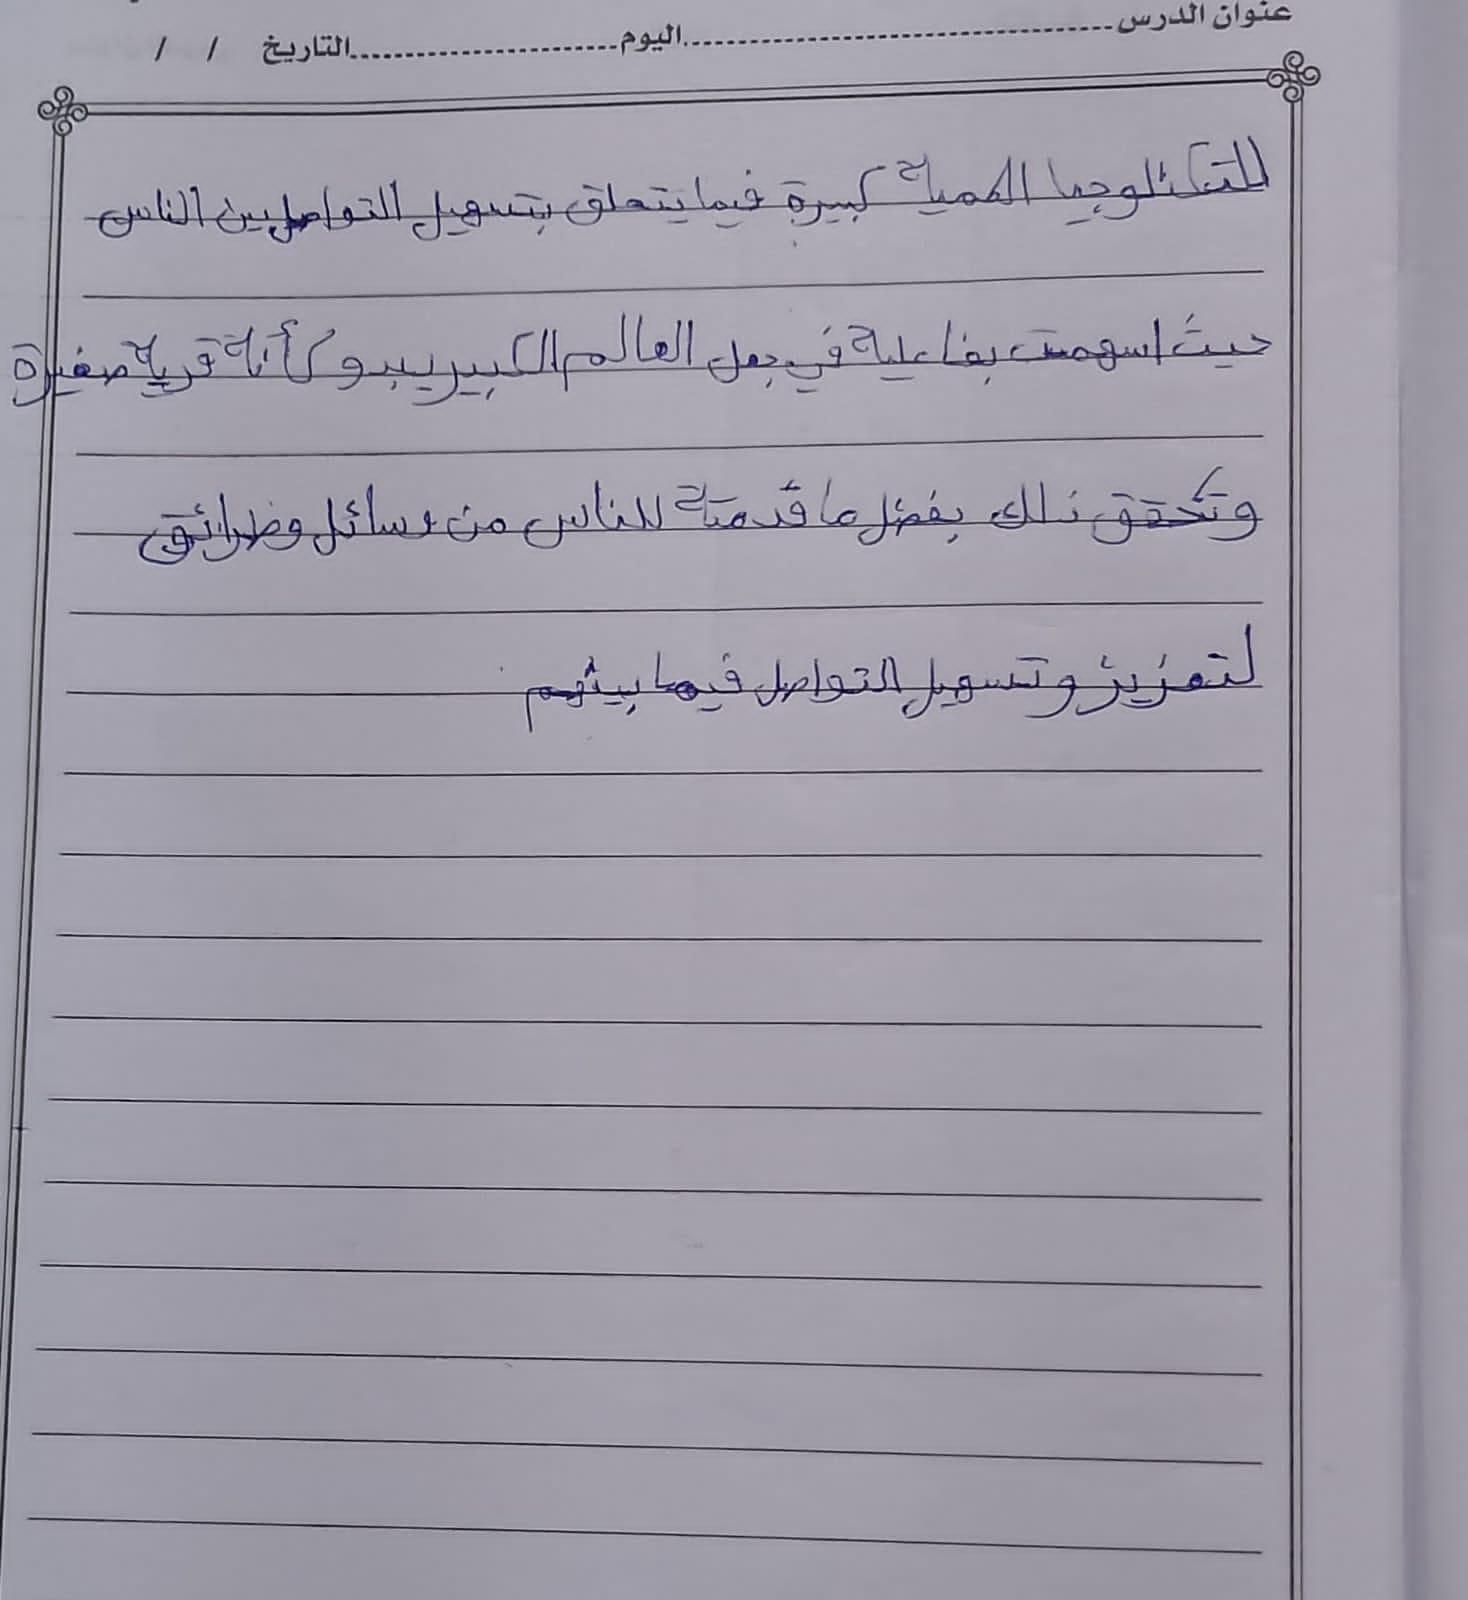 عنوان الدرس ........ اليوم ........ التاريخ / /
للتكنلوجيا اهمية كبيرة فيما يتعلق بتسهيل التواصل بين الناس
حيث اسهمت بفاعلية في جعل العالم الكبير يبدو كأنة قرية صغيرة
وتحقق ذلك بفضل ما قدمتة للناس من وسائل وطرائق
لتعزيز وتسهيل التواصل فيما بينهم